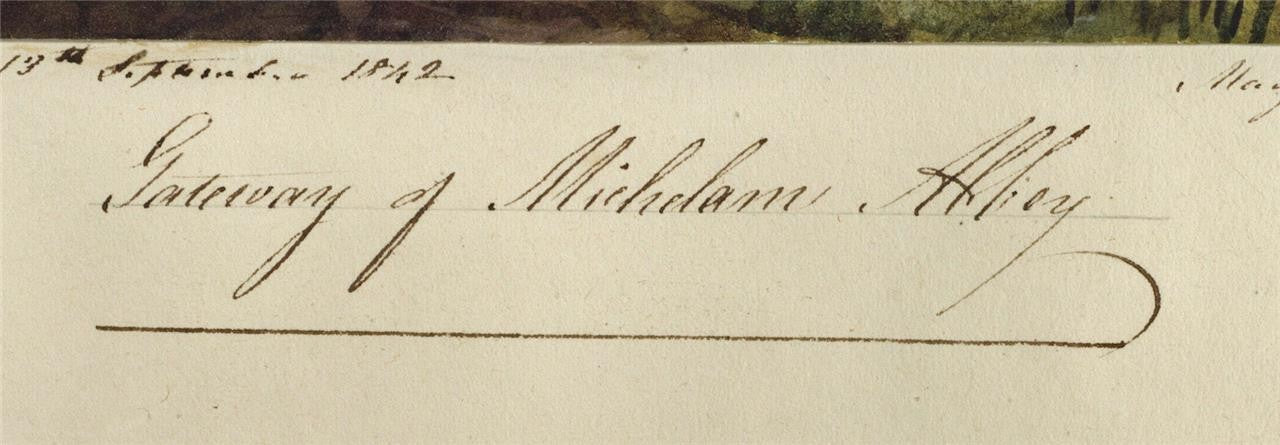 13th September 1842 May
Gateway of Michelam Abbey